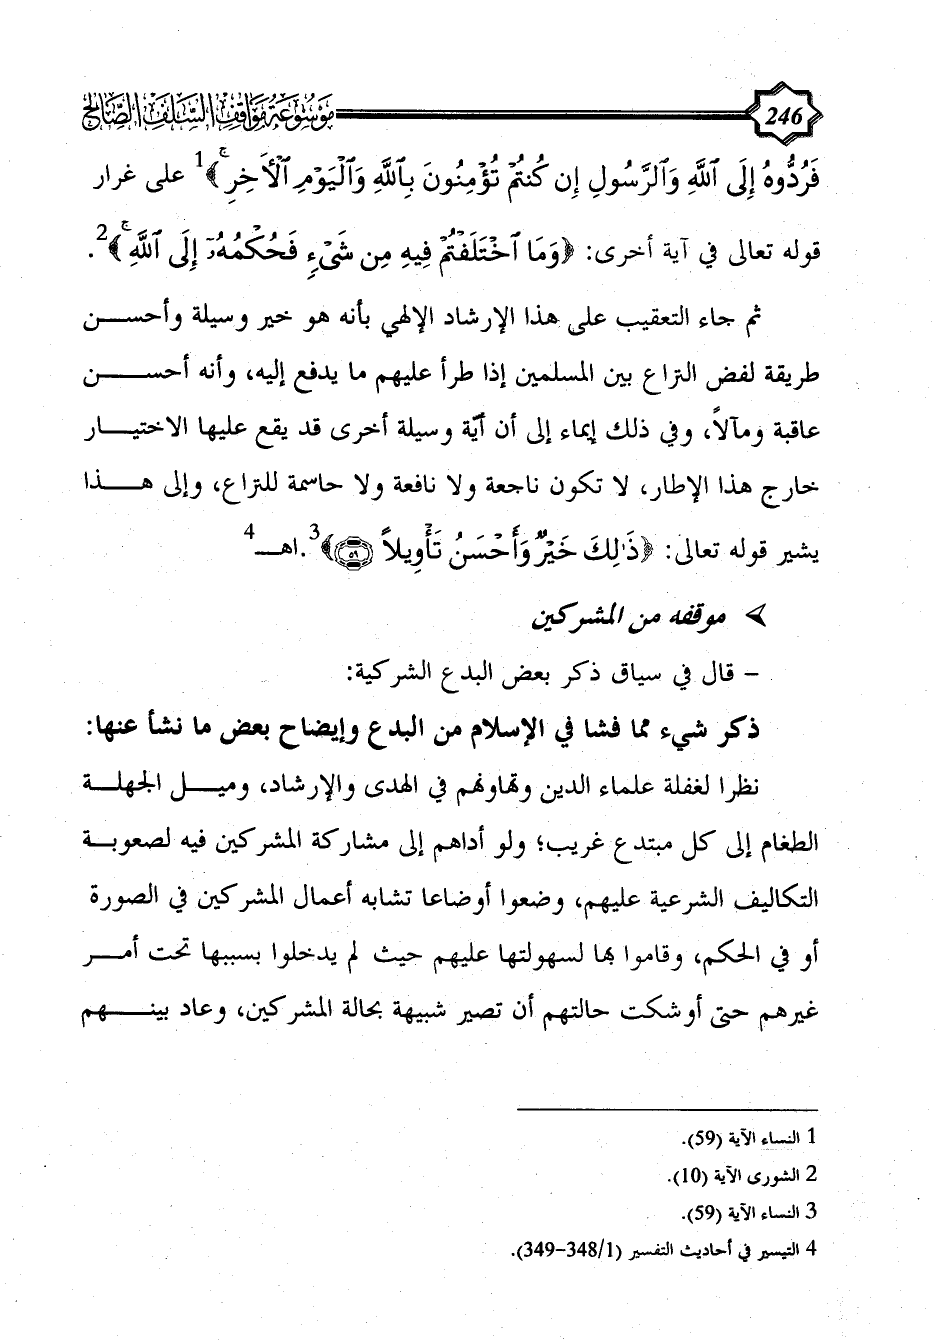 246 موسوعة مواقف السلف الصالح
فَرُدُّوهُ إِلَى ٱللَّهِ وَٱلرَّسُولِ إِن كُنتُمْ تُؤْمِنُونَ بِٱللَّهِ وَٱلْيَوْمِ ٱلْأَخِرِ ۚ﴾1 على غرار
قوله تعالى في آية أخرى: ﴿وَمَا ٱخْتَلَفْتُمْ فِيهِ مِن شَىْءٍ فَحُكْمُهُۥٓ إِلَى ٱللَّهِ ۚ﴾2.
ثم جاء التعقيب على هذا الإرشاد الإلهي بأنه هو خير وسيلة وأحســن
طريقة لفض النزاع بين المسلمين إذا طرأ عليهم ما يدفع إليه، وأنه أحســـن
عاقبة ومآلاً، وفي ذلك إيماء إلى أن أيّة وسيلة أخرى قد يقع عليها الاختيــار
خارج هذا الإطار، لا تكون ناجعة ولا نافعة ولا حاسمة للنزاع، وإلى هـــذا
يشير قوله تعالى: ﴿ذَٰلِكَ خَيْرٌ وَأَحْسَنُ تَأْوِيلاً ٥٩﴾3.اهـ4
➢ موقفه من المشركين
– قال في سياق ذكر بعض البدع الشركية:
ذكر شيء مما فشا في الإسلام من البدع وإيضاح بعض ما نشأ عنها:
نظرا لغفلة علماء الدين وتهاونهم في الهدى والإرشاد، وميـــل الجهلــة
الطغام إلى كل مبتدع غريب؛ ولو أداهم إلى مشاركة المشركين فيه لصعوبــة
التكاليف الشرعية عليهم، وضعوا أوضاعا تشابه أعمال المشركين في الصورة
أو في الحكم، وقاموا بها لسهولتها عليهم حيث لم يدخلوا بسببها تحت أمــر
غيرهم حتى أوشكت حالتهم أن تصير شبيهة بحالة المشركين، وعاد بينــــهم
1 النساء الآية (59).
2 الشورى الآية (10).
3 النساء الآية (59).
4 التيسير في أحاديث التفسير (348/1-349).